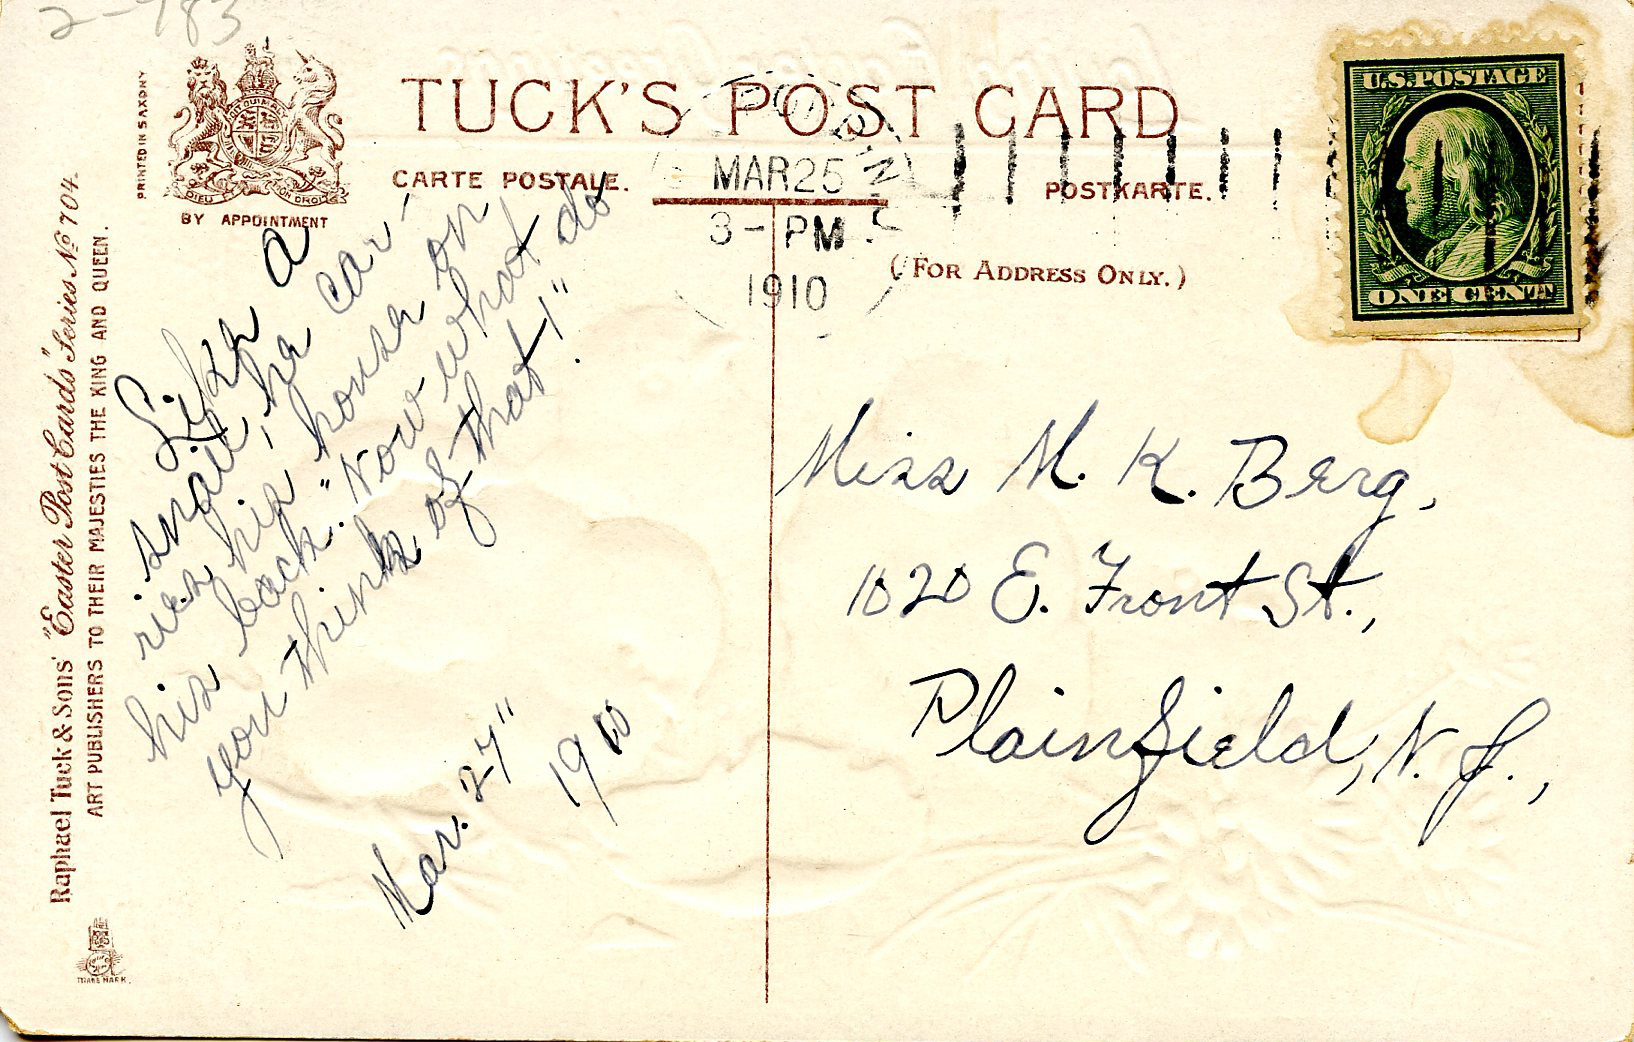 2-783
PRINTED IN SAXONY
DIEU ET MON DROIT
BY APPOINTMENT
TUCK'S POST CARD
CARTE POSTALE.
POSTKARTE.
(FOR ADDRESS ONLY.)
MAR 25
3-PM
1910
N.C.
U.S. POSTAGE
ONE CENT
Raphael Tuck & Sons' "Easter Post Cards" Series No 704.
ART PUBLISHERS TO THEIR MAJESTIES THE KING AND QUEEN.
TRADE MARK.
Like a
snail, he car-
ries his house on
his back. "Now what do
you think of that!".
Mar. 27"
1910
Miss M. K. Berg,
1020 E. Front St.,
Plainfield, N. J.,